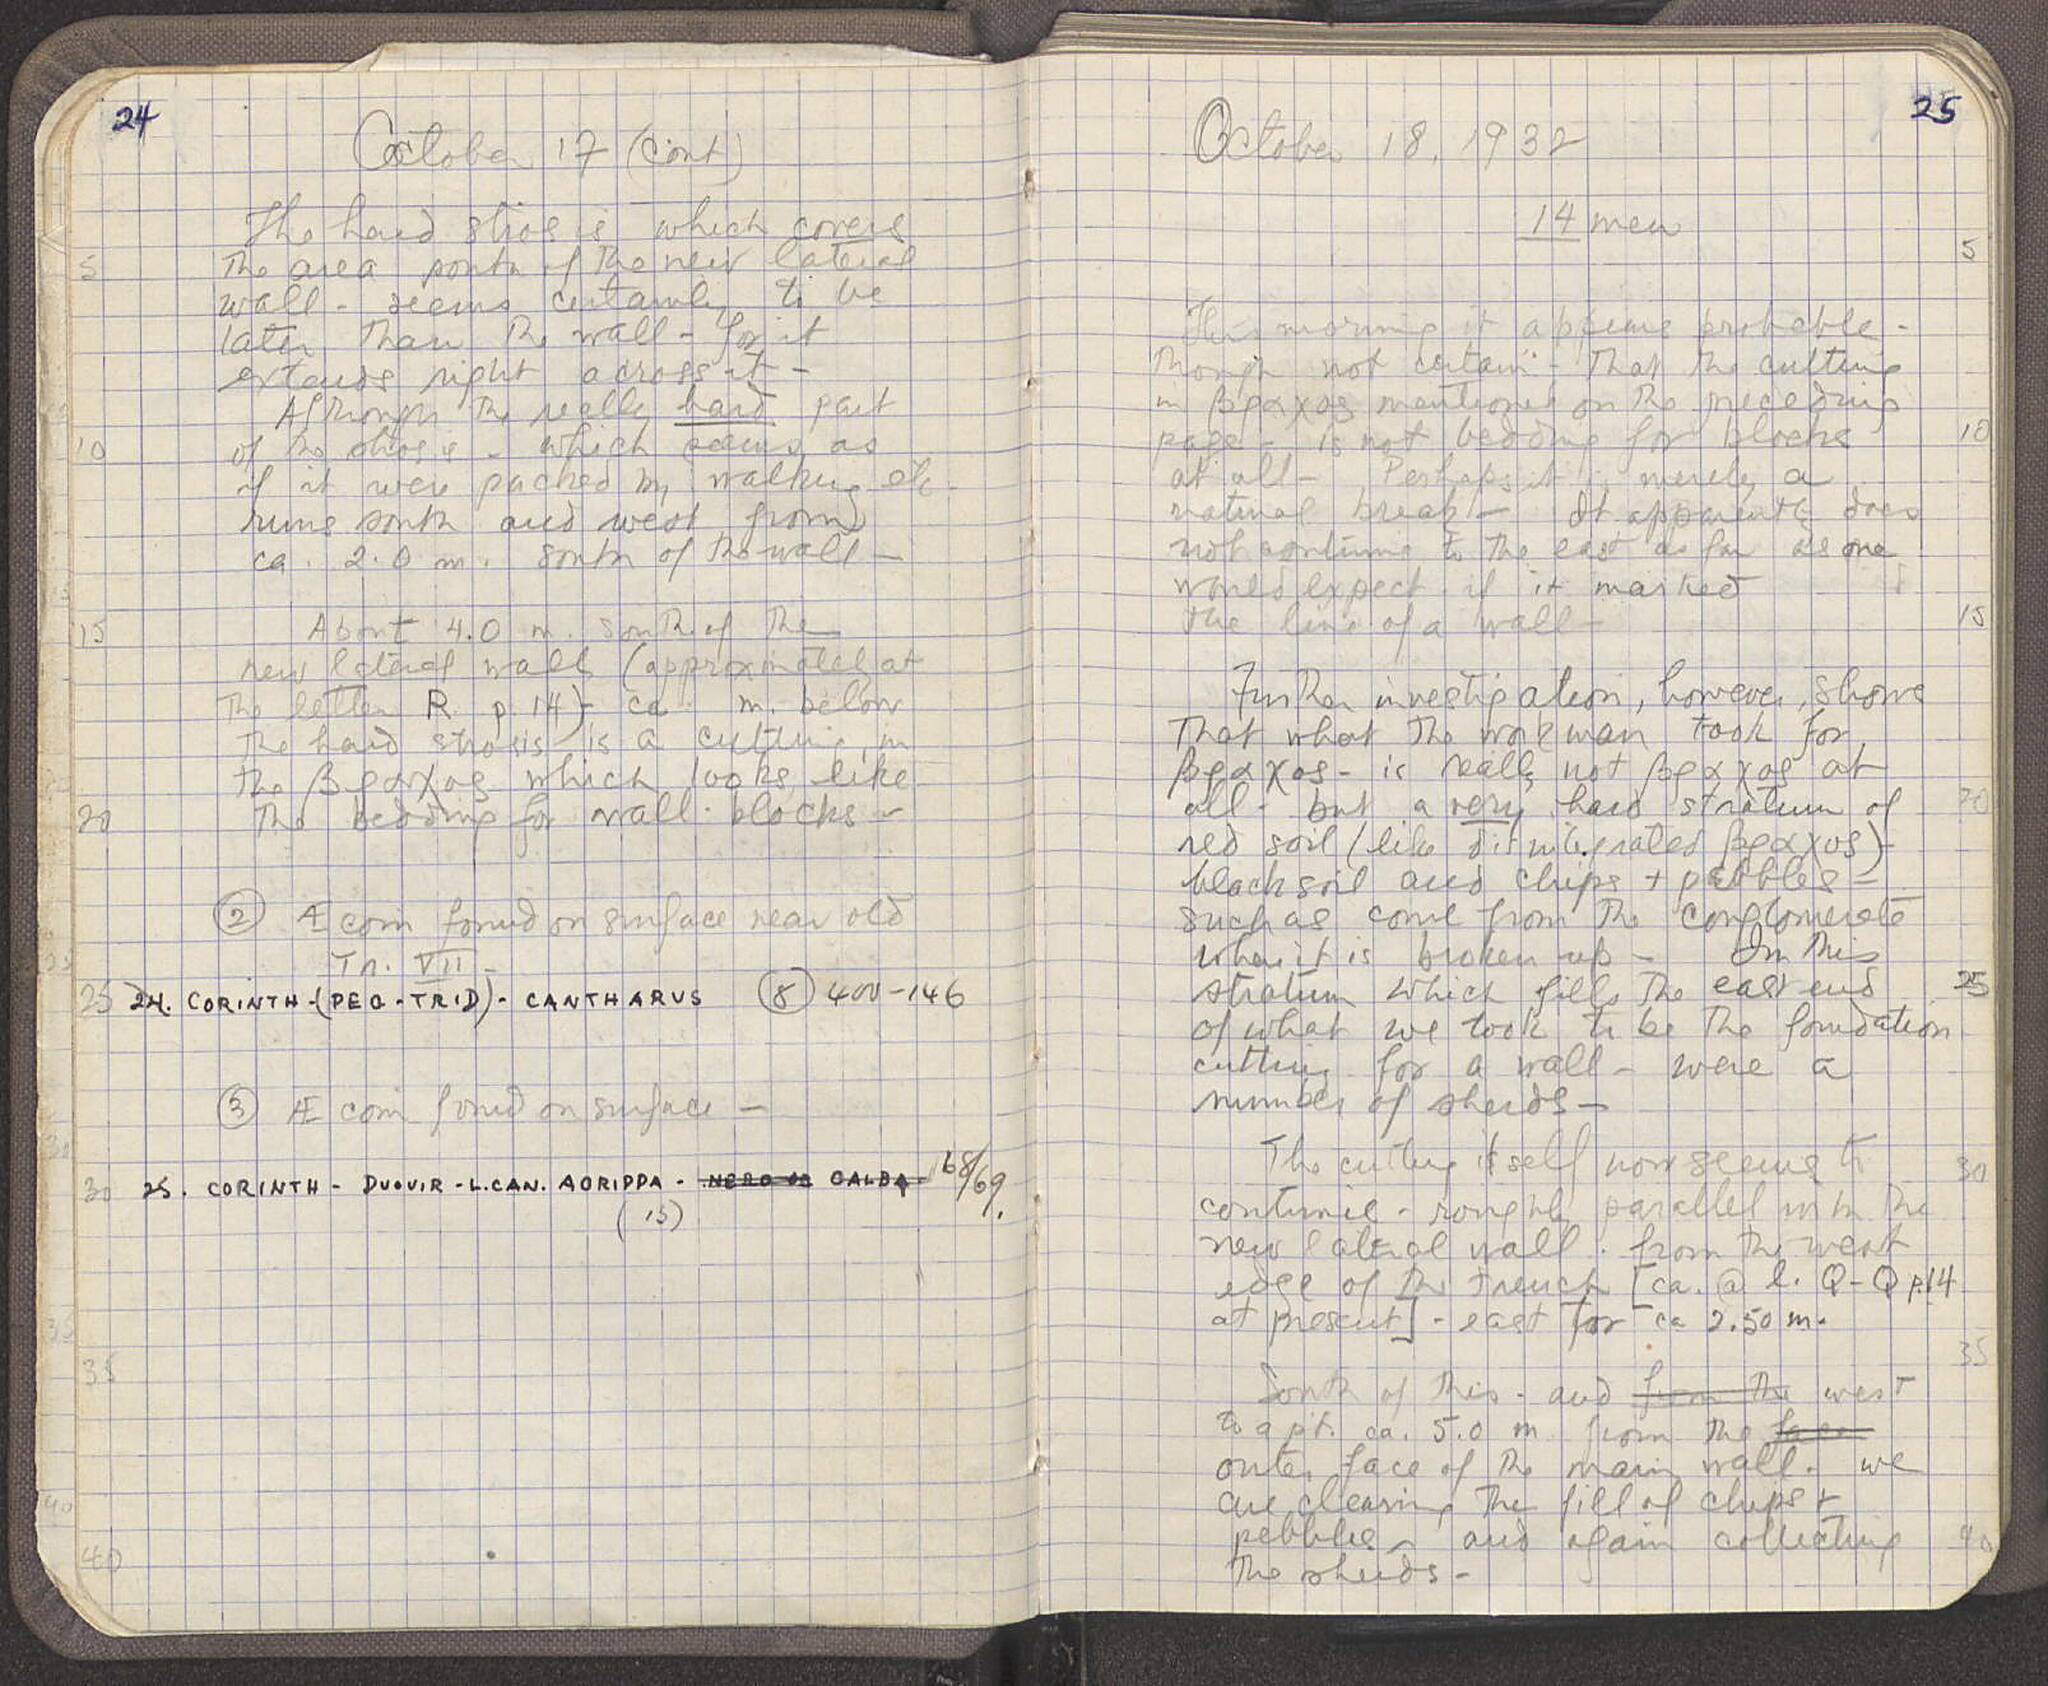 24
October 17 (cont)
The hard strosis which covers
the area south of the new lateral
wall - seems certainly to be
later than the wall - for it
extends right across it -
Although the really hard part
of the strosis - which seems as
if it were packed by walking etc -
runs south and west from
ca. 2.0 m. south of the wall -
About 4.0 m. south of the
new lateral wall (approximately at
the letter R p. 14) - ca. m. below
the hard strosis is a cutting in
the βράχος which looks like
the bedding for wall blocks -
② Æ coin found on surface near old
Tr. VII -
24. CORINTH - (PEG - TRID) - CANTHARUS (8) 400-146
③ Æ coin found on surface -
25. CORINTH - DUOVIR - L. CAN. AGRIPPA - NERO OR GALBA - 68/69.
(15)
5
10
15
20
25
30
35
40
25
October 18, 1932
14 men
This morning it appears probable -
though not certain - that the cutting
in βραχος mentioned on the preceding
page - is not bedding for blocks
at all - Perhaps it is merely a
natural break - It apparently does
not continue to the east as far as one
would expect if it marked
the line of a wall -
Further investigation, however, shows
that what the workman took for
βραχος - is really not βραχος at
all - but a very hard stratum of
red soil (like disintegrated βραχος) -
black soil and chips + pebbles -
such as come from the conglomerate
when it is broken up - In this
stratum which fills the east end
of what we took to be the foundation
cutting for a wall - were a
number of sherds -
The cutting itself now seems to
continue - roughly parallel with the
new lateral wall - from the west
edge of the trench [ca. @ l. Q-Q p.14
at present] - east for ca 2.50 m.
South of this - and from the west
to a pt. ca. 5.0 m from the face
outer face of the main wall - we
are clearing the fill of chips +
pebbles - and again collecting
the sherds -
5
10
15
20
25
30
35
40